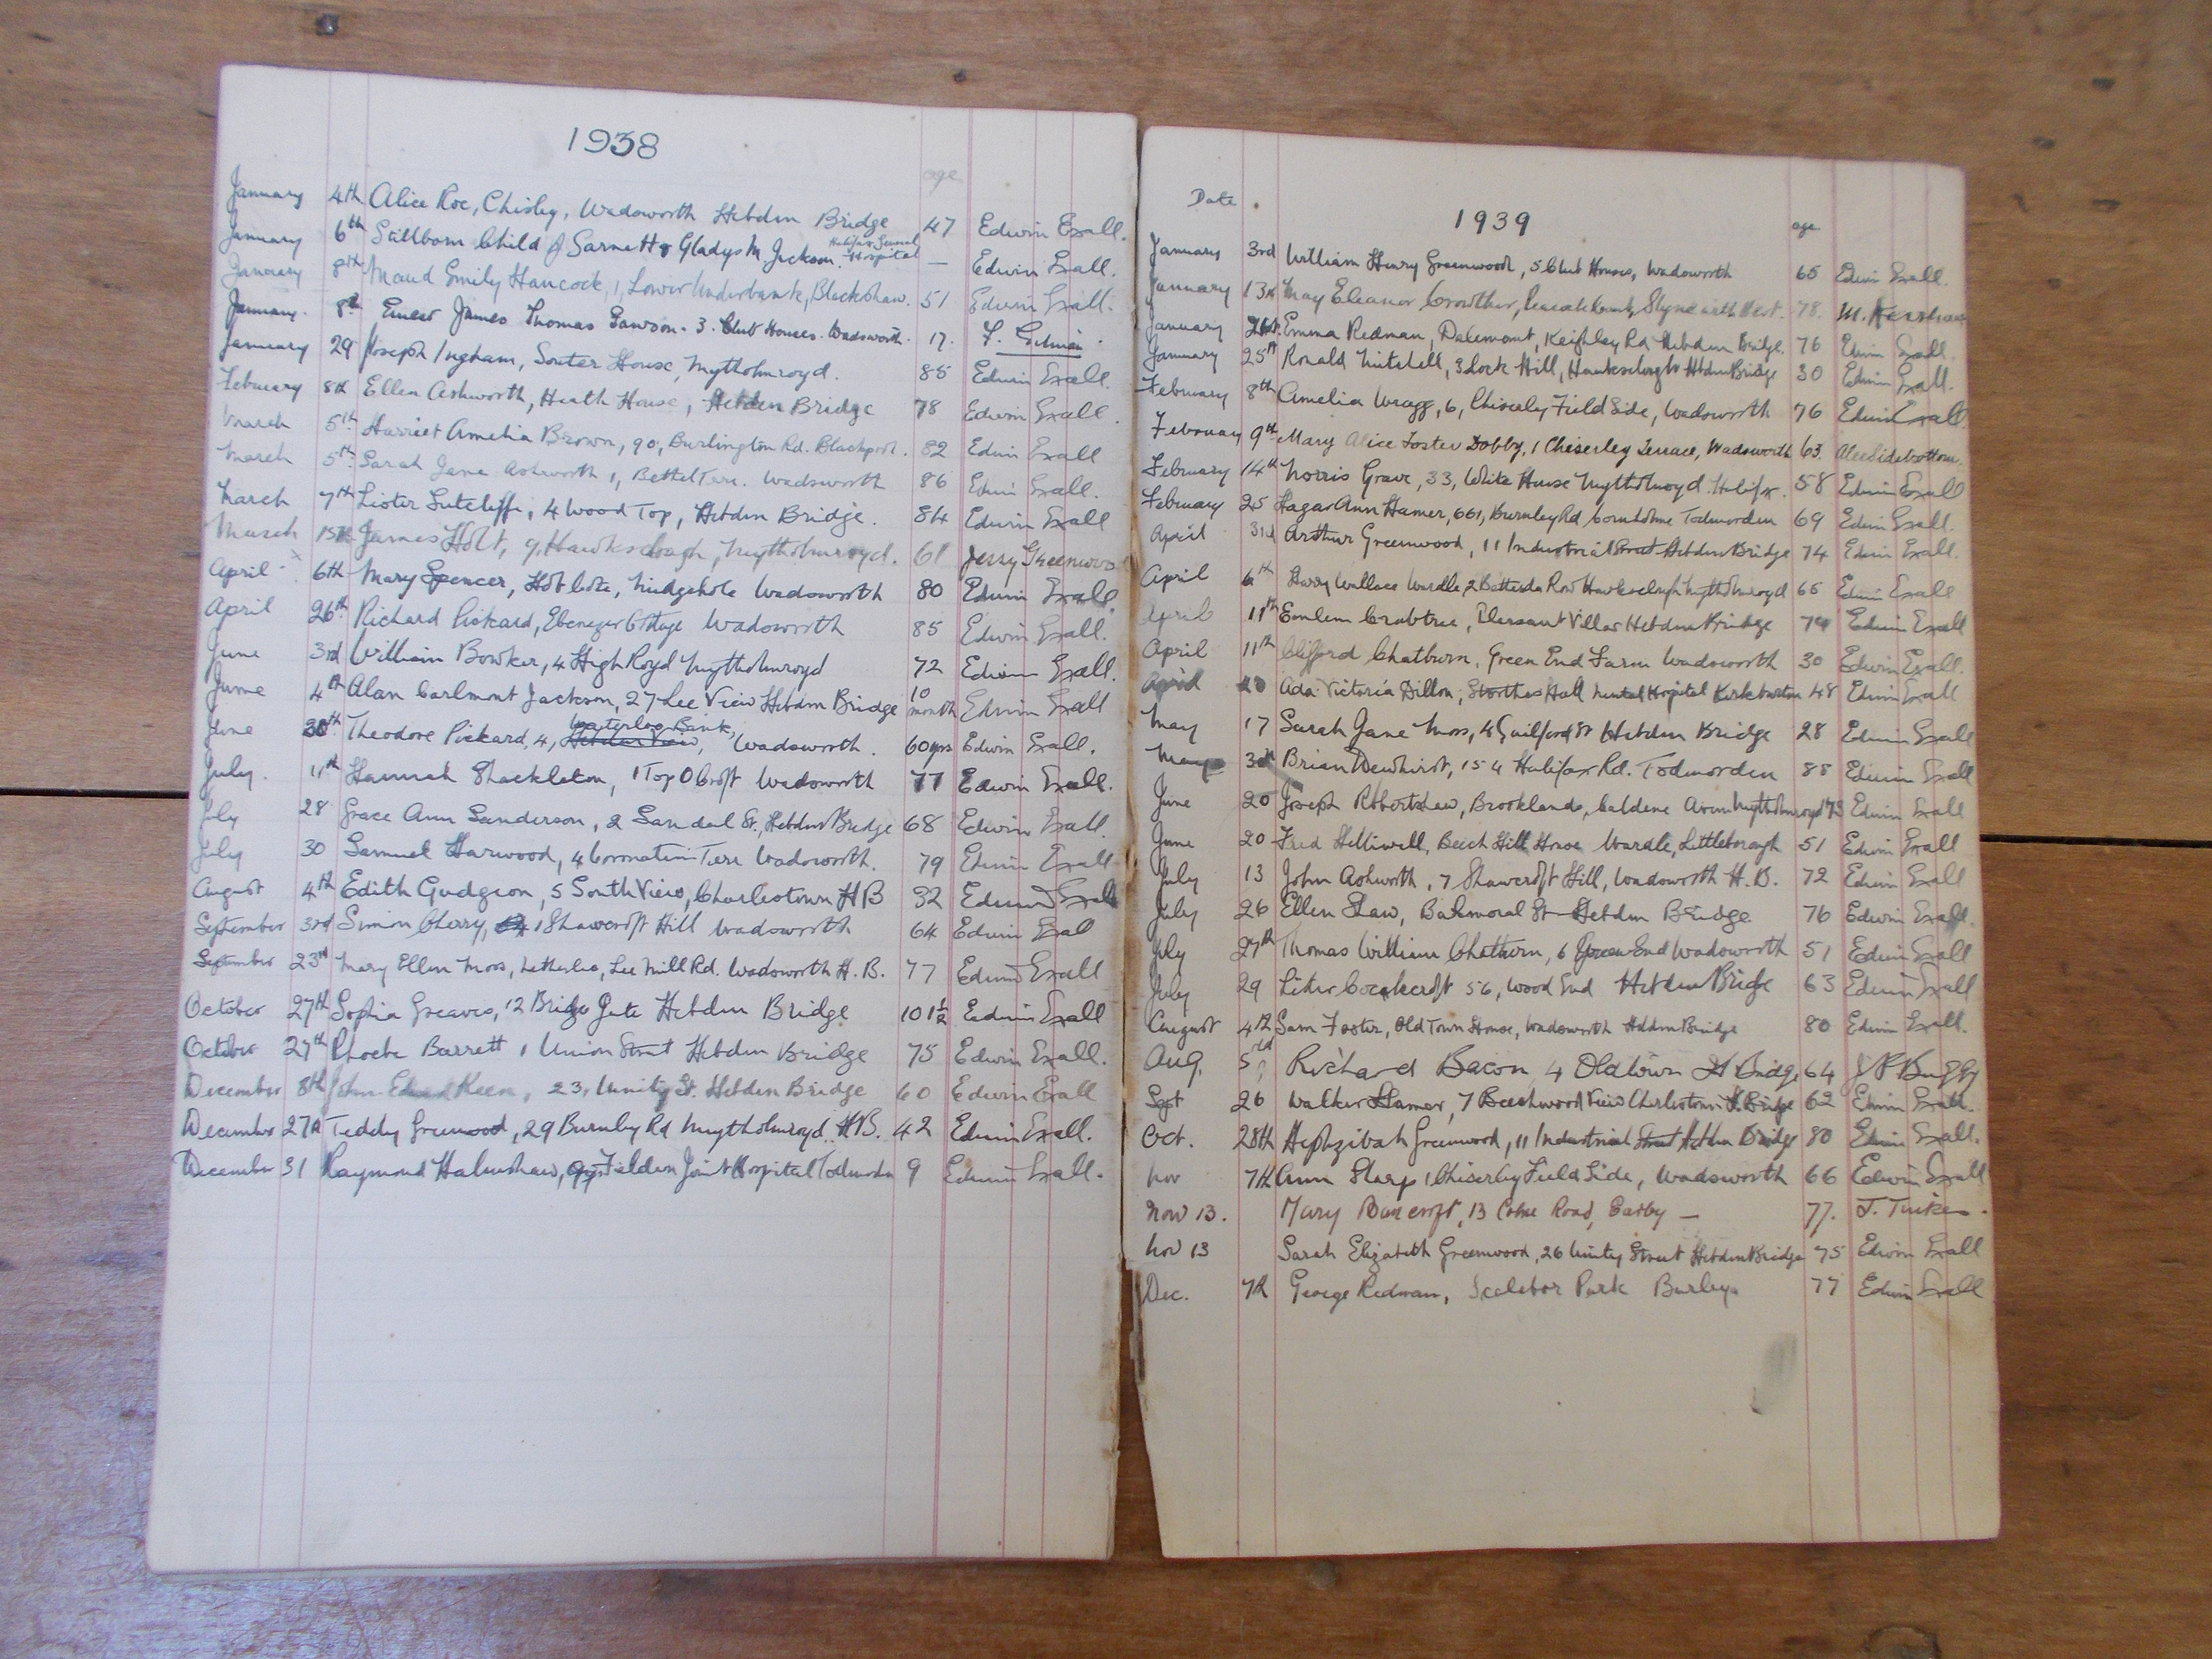 1938
age
January 4th Alice Roe, Chisley, Wadsworth Hebden Bridge 47 Edwin Exall.
Halifax General
January 6th Stillborn Child of Garnett & Gladys M. Jackson. Hospital — Edwin Exall.
January 8th Maud Emily Hancock, 1, Lower Underbank, Blackshaw. 51 Edwin Exall.
January. 8th Ernest James Thomas Dawson. 3. Club Houses. Wadsworth. 17. F.
January 29 Joseph Ingham, Souter House, Mytholmroyd. 85 Edwin Exall.
February 8th Ellen Ashworth, Heath House, Hebden Bridge 78 Edwin Exall.
March 5th Harriet Amelia Brown, 90, Burlington Rd. Blackpool. 82 Edwin Exall
March 5th Sarah Jane Ashworth 1, Bethel Terr. Wadsworth 86 Edwin Exall.
March 7th Lister Sutcliffe, 4 Wood Top, Hebden Bridge. 84 Edwin Exall
March 15th James Holt, 9, Hawksclough, Mytholmroyd. 61 Jerry Greenwood
April 6th Mary Spencer, Midgehole Wadsworth 80 Edwin Exall.
April 26th Richard Pickard, Ebenezer Cottage Wadsworth 85 Edwin Exall.
June 3rd William Bowker, 4 High Royd Mytholmroyd 72 Edwin Exall.
June 4th Alan Carlmont Jackson, 27 Lee View Hebden Bridge 10 month Edwin Exall
Waterloo Bank,
June 30th Theodore Pickard, 4, Wadsworth. 60 yrs Edwin Exall.
July. 11th Hannah Shackleton, 1 Top O Croft Wadsworth 77 Edwin Exall.
July 28 Grace Ann Sanderson, 2 Sandal St., Hebden Bridge 68 Edwin Exall.
July 30 Samuel Harwood, 4 Coronation Terr Wadsworth. 79 Edwin Exall
August 4th Edith Gudgeon, 5 South View, Charlestown H B 32 Edwin Exall
September 3rd Simon Cherry, 1 Shawcroft Hill Wadsworth 64 Edwin Exall
September 23rd Mary Ellen Moss, Lee Mill Rd. Wadsworth H. B. 77 Edwin Exall
October 27th Sophia Greaves, 12 Bridge Gate Hebden Bridge 101½ Edwin Exall
October 27th Phoebe Barrett 1 Union Street Hebden Bridge 75 Edwin Exall.
December 8th John Edward Keen, 23, Unity St. Hebden Bridge 60 Edwin Exall
December 27th Teddy Greenwood, 29 Burnley Rd Mytholmroyd. H.B. 42 Edwin Exall.
December 31 Raymond Halmshaw, Fielden Joint Hospital Todmorden 9 Edwin Exall.
Date
1939
age
January 3rd William Henry Greenwood, 5 Club Houses, Wadsworth 65 Edwin Exall.
January 13th May Eleanor Crowther, 78. M. Kershaw
January 24th Emma Redman, Dalemont, Keighley Rd Hebden Bridge. 76 Edwin Exall
January 25th Ronald Mitchell, 3 Lock Hill, Hawksclough Hebden Bridge 30 Edwin Exall.
February 8th Amelia Wragg, 6, Chiserley Field Side, Wadsworth 76 Edwin Exall
February 9th Mary Alice Foster Dobby, 1 Chiserley Terrace, Wadsworth 63. Alice Sidebottom.
February 14th Norris Grave, 33, White House Mytholmroyd. Halifax. 58 Edwin Exall
February 25 Hagar Ann Hamer, 661, Burnley Rd Cornholme Todmorden 69 Edwin Exall.
April Arthur Greenwood, 11 Industrial Street Hebden Bridge 74 Edwin Exall.
April 6th Harry Wallace Wardle, 2 Row Hawksclough Mytholmroyd 65 Edwin Exall
April 11th Emlem Crabtree, Pleasant Villas Hebden Bridge 74 Edwin Exall
April 11th Clifford Chatburn, Green End Farm Wadsworth 30 Edwin Exall.
April 20 Ada Victoria Dillon, Storthes Hall Mental Hospital Kirkburton 48 Edwin Exall
May 17 Sarah Jane Moss, 4 Guilford St Hebden Bridge 28 Edwin Exall
May Brian Dewhirst, 154 Halifax Rd. Todmorden 88 Edwin Exall
June 20 Joseph Robertshaw, Brooklands, Caldene Avenue Mytholmroyd 73 Edwin Exall
June 20 Fred Helliwell, Beech Hill House Wardle, Littleborough 51 Edwin Exall
July 13 John Ashworth, 7 Shawcroft Hill, Wadsworth H. B. 72 Edwin Exall
July 26 Ellen Shaw, Balmoral St Hebden Bridge 76 Edwin Exall.
July 27th Thomas William Chatburn, 6 Green End Wadsworth 51 Edwin Exall
July 29 Lister Cockcroft 56, Wood End Hebden Bridge 63 Edwin Exall
August 4th Sam Foster, Old Town House, Wadsworth Hebden Bridge 80 Edwin Exall.
Aug. 5 Richard Bacon 4 Oldtown H Bridge 64
Sept 26 Walker Hamer, 7 Beechwood View Charlestown H. Bridge 62 Edwin Exall.
Oct. 28th Hephzibah Greenwood, 11 Industrial Street Hebden Bridge 80 Edwin Exall.
Nov 7th Ann Sharp 1 Chiserley Field Side, Wadsworth 66 Edwin Exall
Nov 13. Mary Bancroft, 13 Colne Road, Earby — 77.
Nov 13 Sarah Elizabeth Greenwood, 26 Unity Street Hebden Bridge 75 Edwin Exall
Dec. 7th George Redman, Scalebor Park Burley 77 Edwin Exall